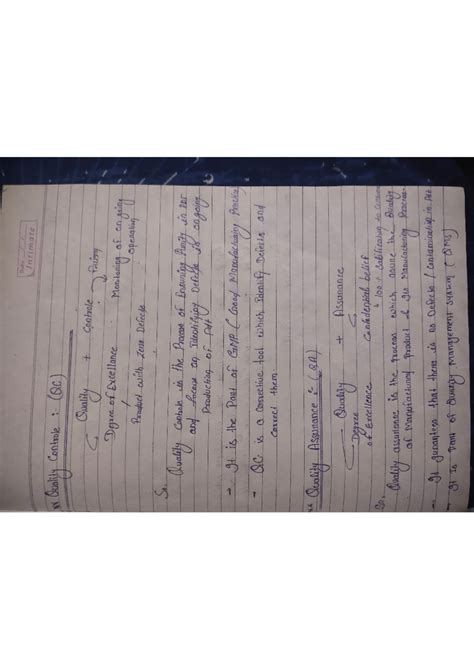 Intimate
** Quality Controle : (QC)
Quality + Controle → Paring
Degree of Excellance Monitoring of on going
operating
Product with zero Defects
So. Quality Controle is the Process of Ensuring Purity in Pdt
and focuse on Identifying Defects of on going
Production of Pdt
→ It is the Part of GMP (Good Manufacturing Practice
→ QC is a corrective tool which Identify Defects and
correct them
** Quality Assurance : (QA)
Quality + Assurance
Degree Confidential belief
of Excellence 100% Satisfaction to
So. Quality assurance is the process which assure the Quality
of Manufactured Product & its Manufacturing Process
→ It guarantee that there is no Defects / Contamination in Pdt.
→ It is Part of Quality Management System (QMS)